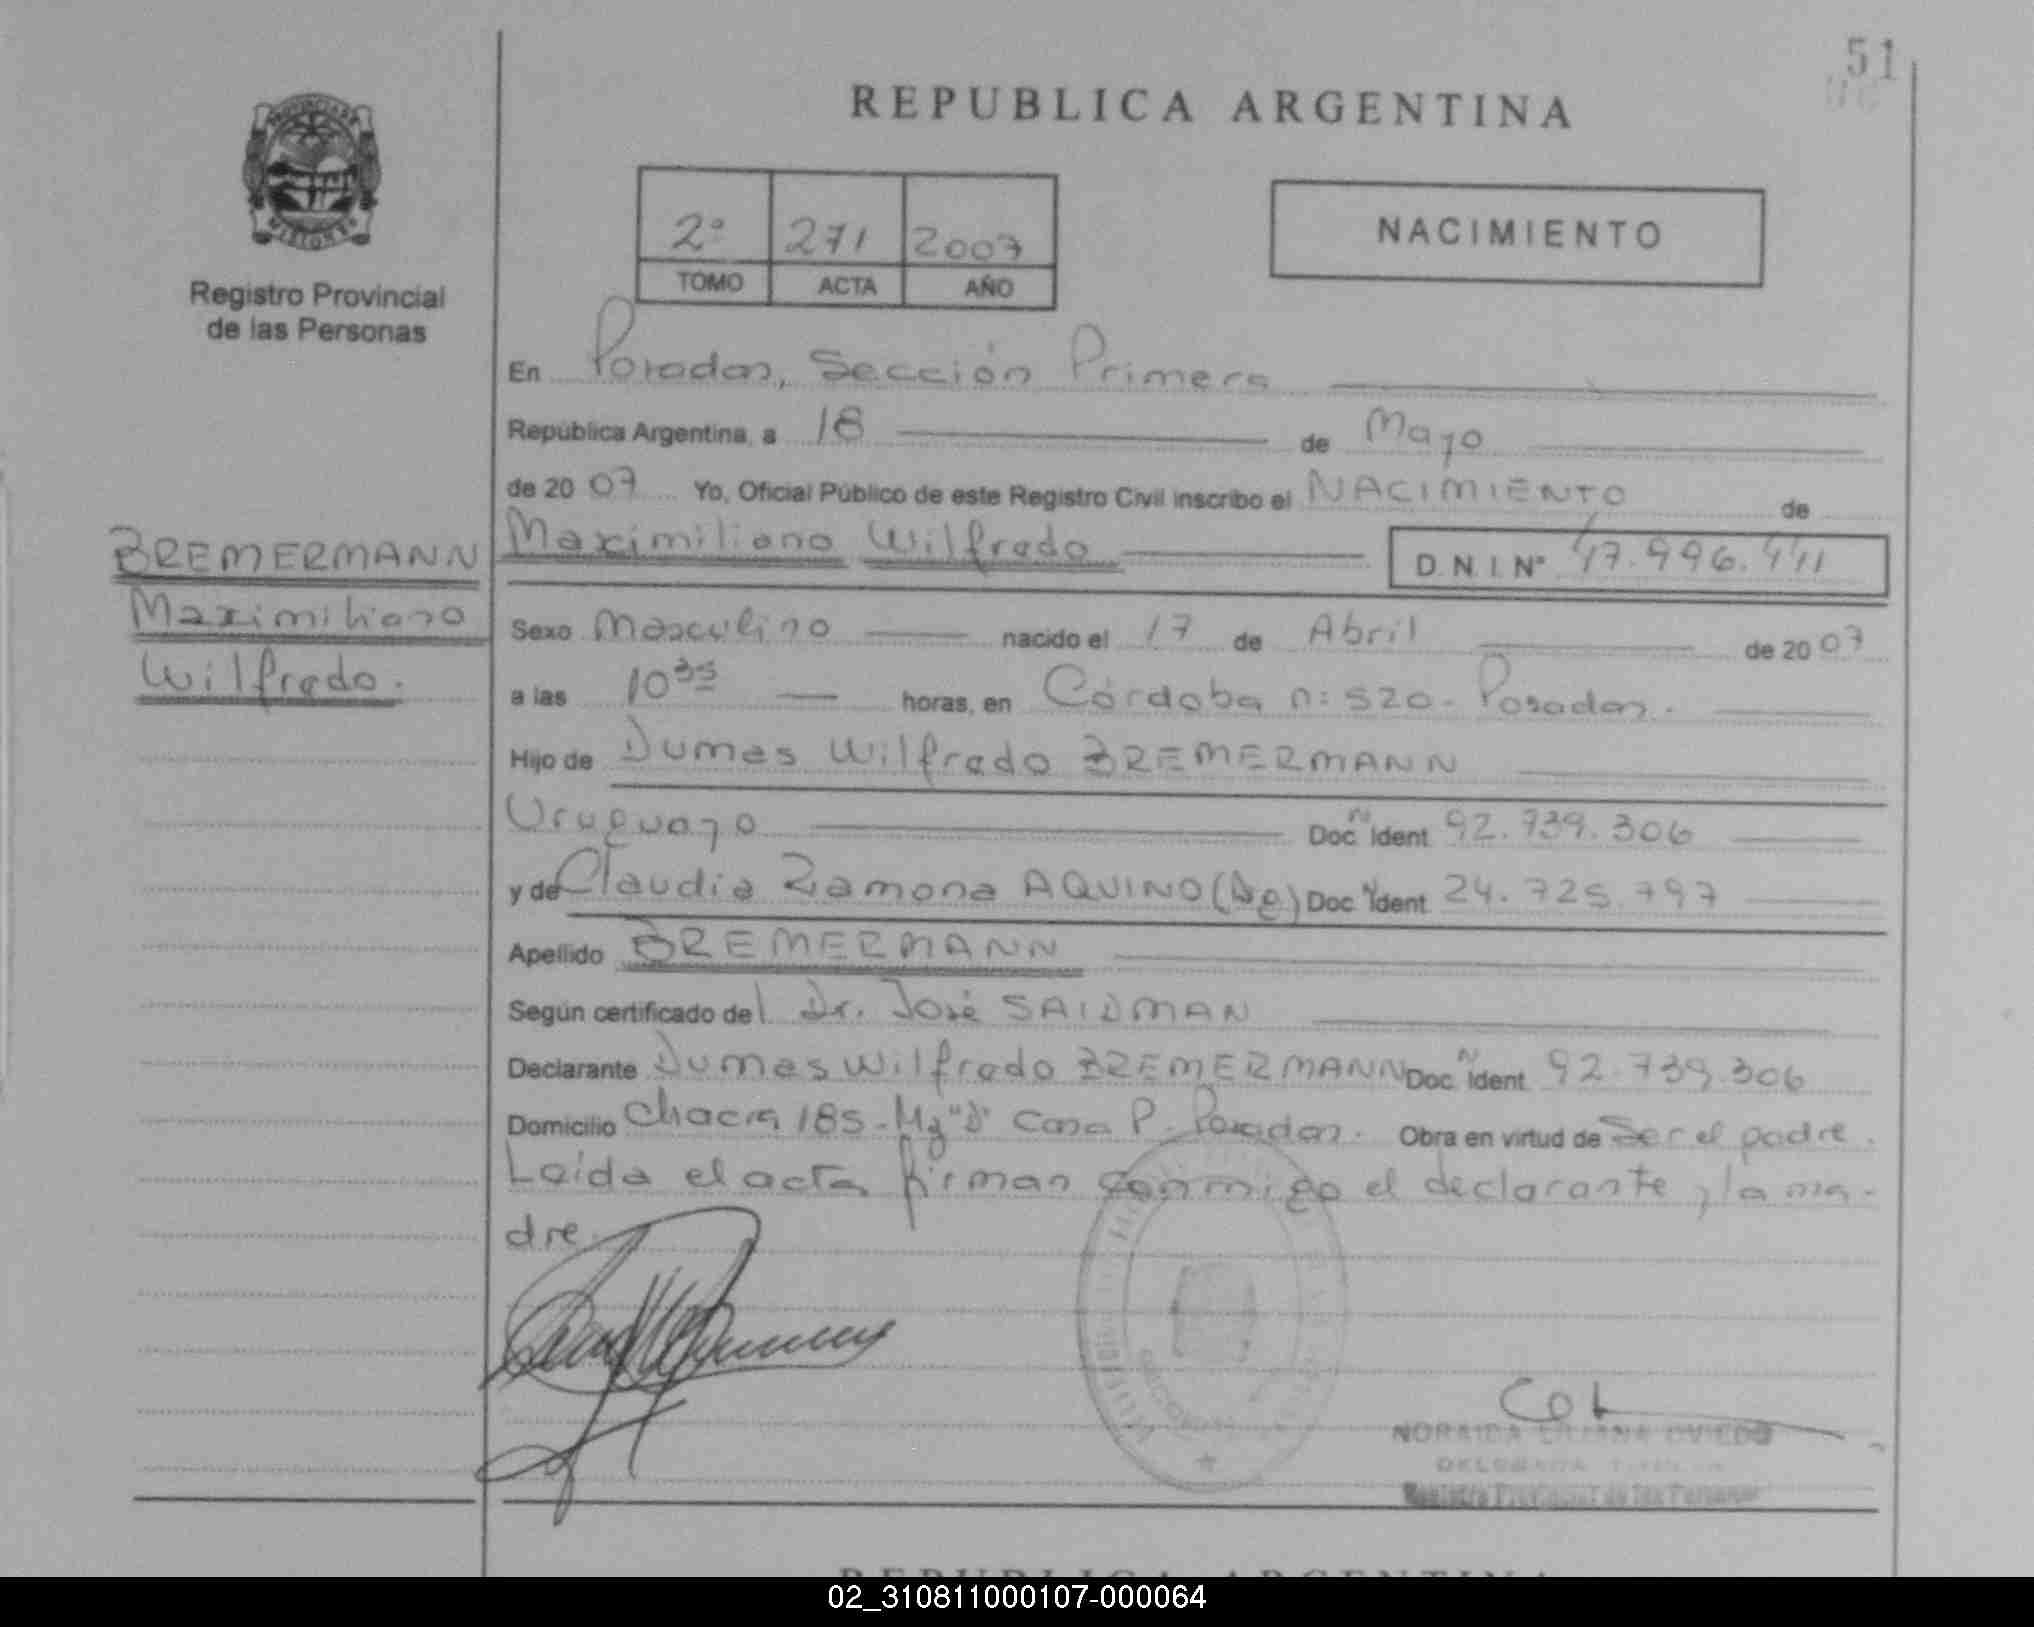 51
REPUBLICA ARGENTINA
PROVINCIA DE
MISIONES
Registro Provincial
de las Personas
2º 271 2007
TOMO ACTA AÑO
NACIMIENTO
En Posadas, Sección Primera
República Argentina, a 18 de Mayo
de 2007 Yo, Oficial Público de este Registro Civil inscribo el NACIMIENTO de
BREMERMANN
Maximiliano
Wilfredo.
Maximiliano Wilfredo D.N.I. Nº 47.996.441
Sexo Masculino nacido el 17 de Abril de 2007
a las 10 35 horas, en Córdoba n: 520 - Posadas.
Hijo de Dumas Wilfredo BREMERMANN
Uruguayo Doc. N Ident 92.739.306
y de Claudia Ramona AQUINO (Ag) Doc. N Ident 24.725.797
Apellido BREMERMANN
Según certificado del Dr. José SAIDMAN
Declarante Dumas Wilfredo BREMERMANN Doc. N Ident 92.739.306
Domicilio Chacra 185 - Mz "D" Casa P. Posadas. Obra en virtud de Ser el padre.
Leida el acta firman conmigo el declarante y la ma-
dre.
NORAIDA LILIANA OVIEDO
DELEGADA
Registro Provincial de las Personas
REPUBLICA ARGENTINA
02_310811000107-000064